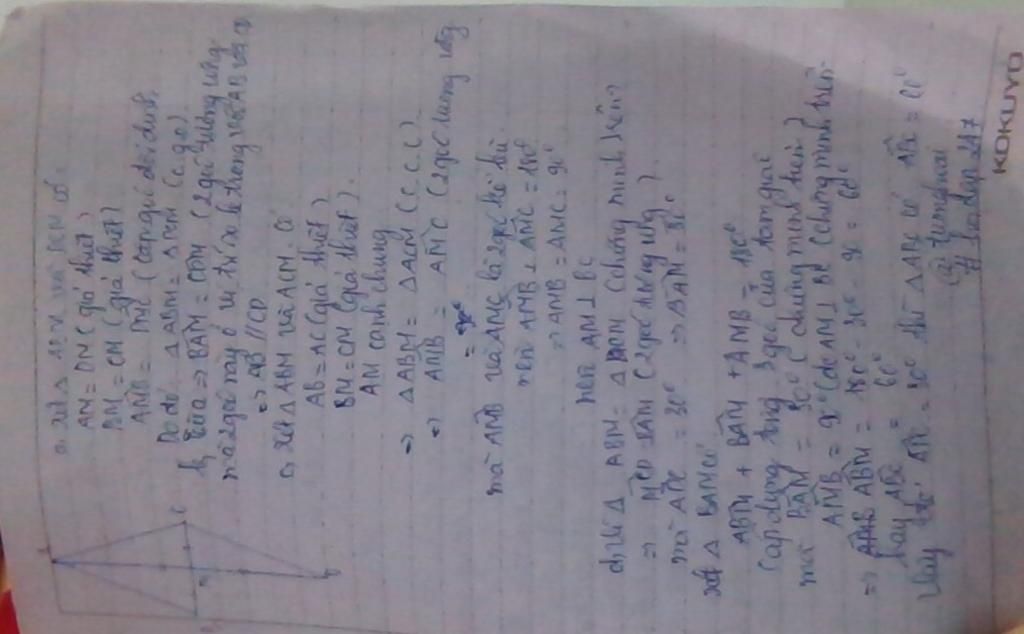 a, xét Δ ABM và DCM có.
AM = DM (giả thiết)
BM = CM (giả thiết)
AMB = DMC (cặp góc đối đỉnh)
Do đó Δ ABM = Δ DCM (c.g.c)
b, => BAM = CDM (2 góc tương ứng
mà 2 góc này ở vị trí so le trong của AB và CD
=> AB // CD
c, xét Δ ABM và ACM. Có
AB = AC (giả thiết)
BM = CM (giả thiết).
AM cạnh chung
=> Δ ABM = Δ ACM (C.C.C).
=> AMB = AMC (2 góc tương ứng
= 90°
mà AMB và AMC là 2 góc kề bù
nên AMB + AMC = 180°
=> AMB = AMC = 90°
nên AM ⊥ BC
d, Vì Δ ABM = Δ DCM (chứng minh trên)
=> MCD = BAM (2 góc tương ứng).
mà ADC = 30° => BAM = 30°
xét Δ BAM có
ABM + BAM + AMB = 180°
(áp dụng tổng 3 góc của tam giác
mà BAM = 30° (chứng minh trên)
AMB = 90° (do AM ⊥ BC (chứng minh trên)
=> ABM = 180° - 30° - 90 = 60°
hay ABC = 60°
Vậy ADC = 30° thì Δ ABC có ABC = 60°
# hoidap 247
KOKUYO
A
C
D